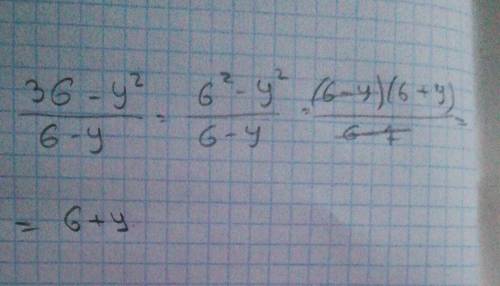 (36 - y²)/(6 - y) = (6² - y²)/(6 - y) = (6 - y)(6 + y)/(6 - y) =
= 6 + y